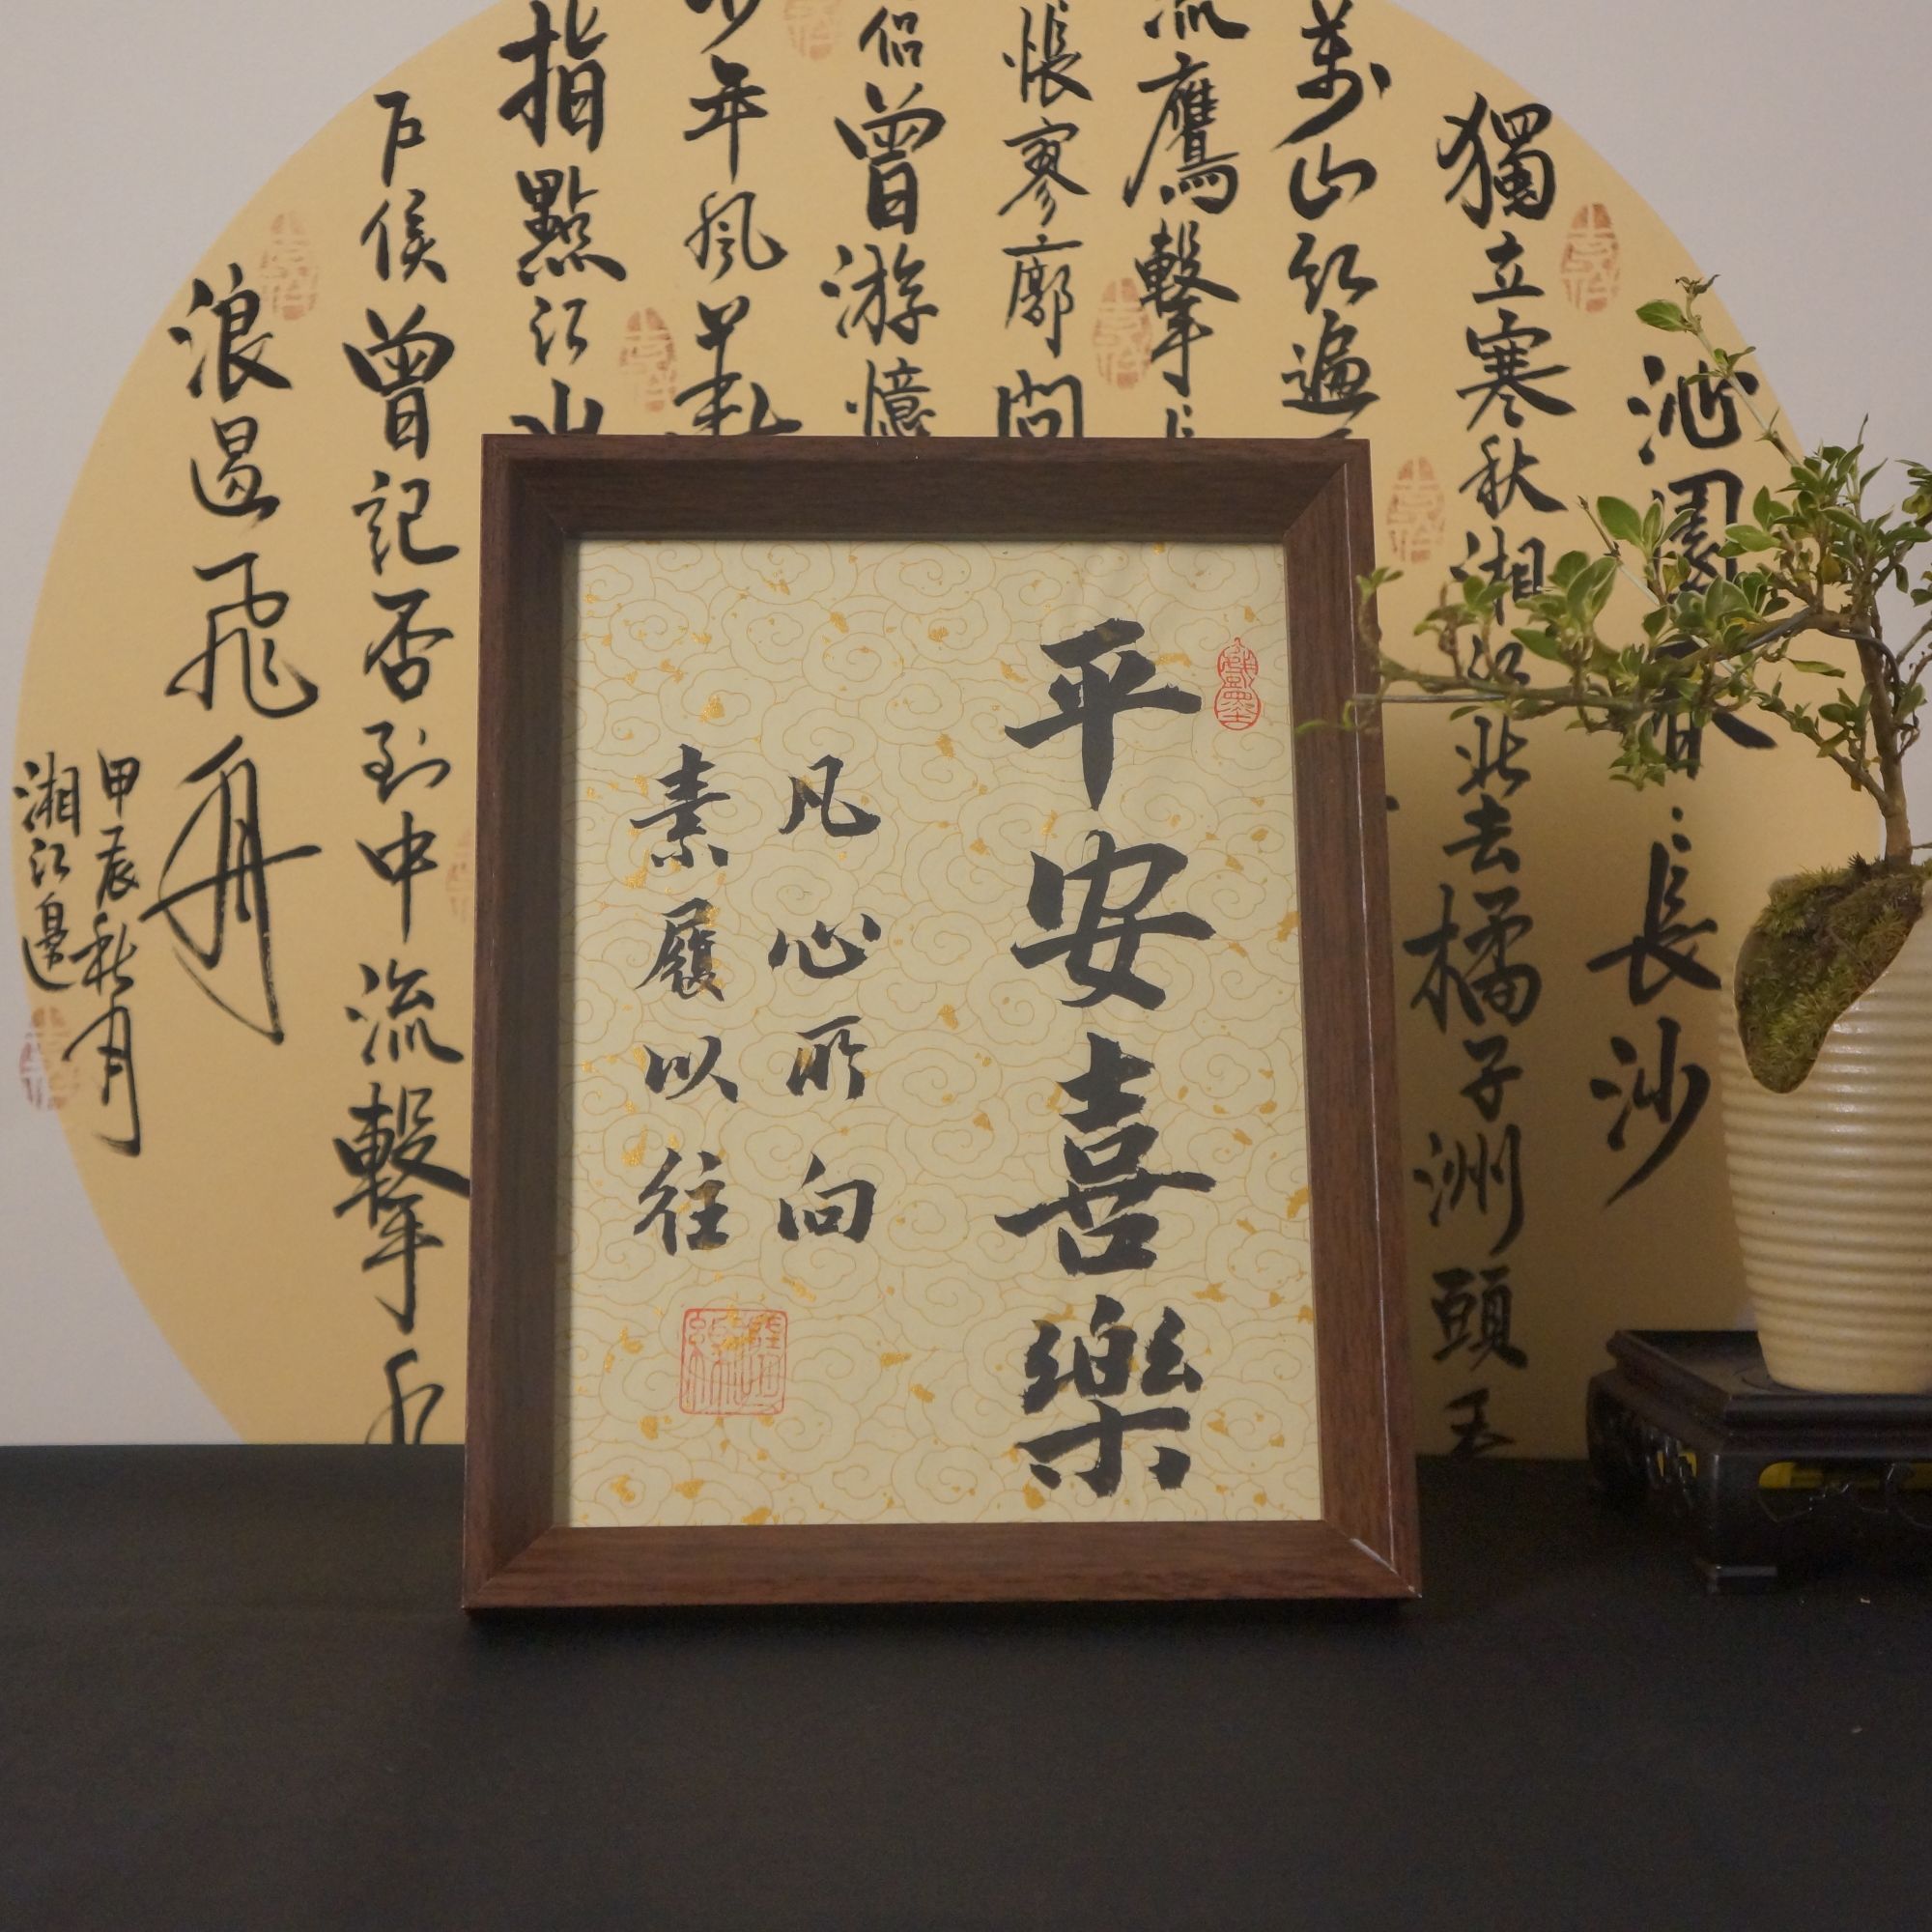 平安喜樂
凡心所向
素履以往
沁園春·長沙
獨立寒秋湘江北去橘子洲頭
萬山紅遍
流鷹擊長
悵寥廓問
侣曾游憶
少年風華
指點江山
戶侯曾記否到中流擊水
浪遏飛舟
甲辰秋月
湘江邊